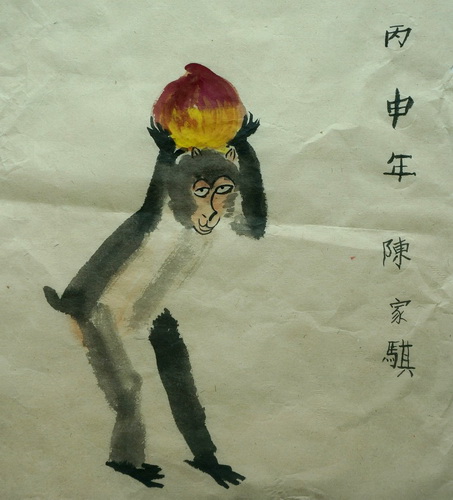 丙申年 陳家騏